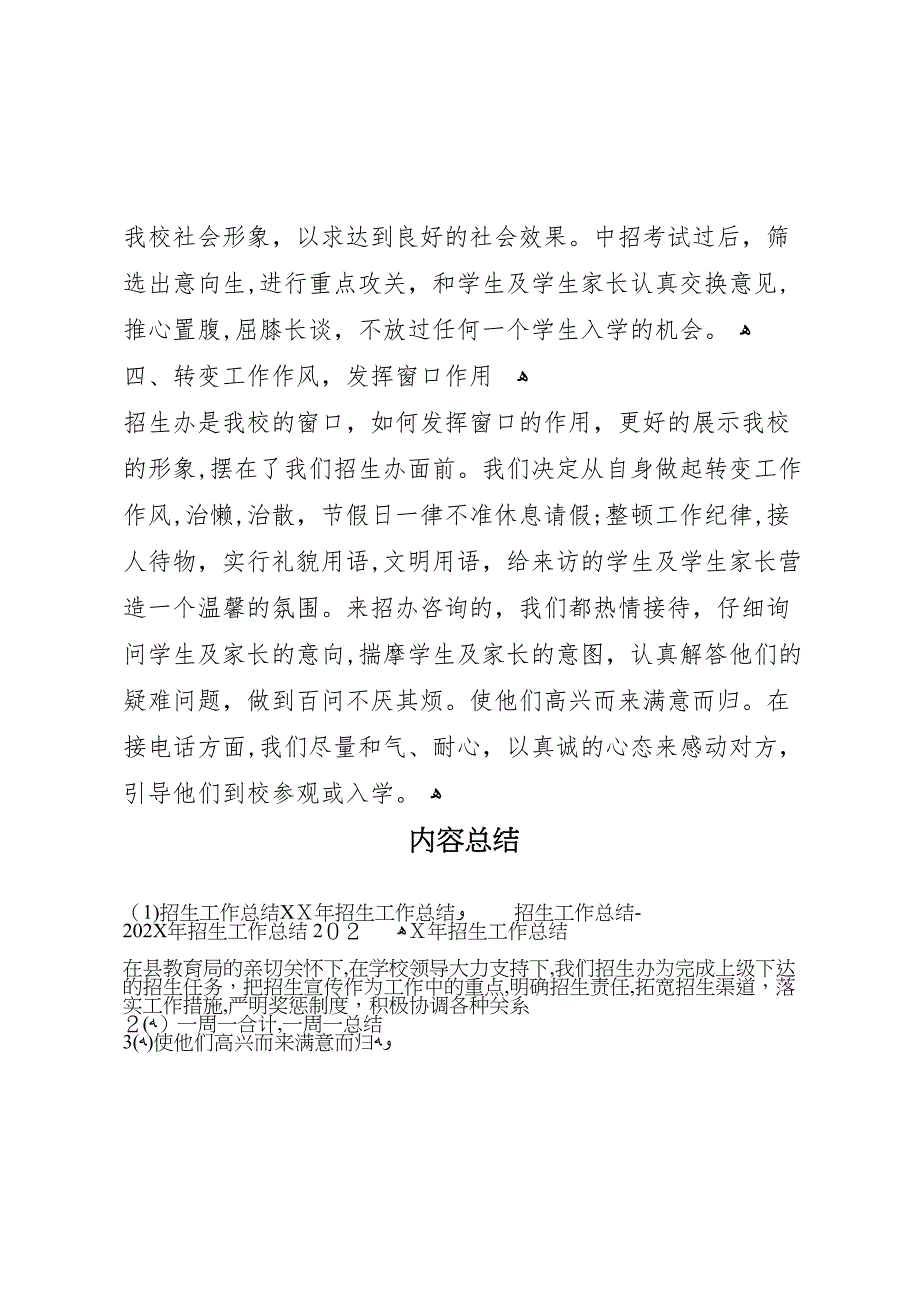 我校社会形象，以求达到良好的社会效果。中招考试过后，筛
选出意向生,进行重点攻关，和学生及学生家长认真交换意见,
推心置腹,屈膝长谈，不放过任何一个学生入学的机会。 ﻫ
四、转变工作作风，发挥窗口作用 ﻫ
招生办是我校的窗口，如何发挥窗口的作用，更好的展示我校
的形象,摆在了我们招生办面前。我们决定从自身做起转变工作
作风,治懒,治散，节假日一律不准休息请假;整顿工作纪律,接
人待物，实行礼貌用语,文明用语，给来访的学生及学生家长营
造一个温馨的氛围。来招办咨询的，我们都热情接待，仔细询
问学生及家长的意向,揣摩学生及家长的意图，认真解答他们的
疑难问题，做到百问不厌其烦。使他们高兴而来满意而归。在
接电话方面,我们尽量和气、耐心，以真诚的心态来感动对方，
引导他们到校参观或入学。 ﻫ
内容总结
（1)招生工作总结XＸ年招生工作总结و 招生工作总结-
202X年招生工作总结 2０２ ﻫＸ年招生工作总结
在县教育局的亲切关怀下,在学校领导大力支持下,我们招生办为完成上级下达
的招生任务，把招生宣传作为工作中的重点,明确招生责任,拓宽招生渠道，落
实工作措施,严明奖惩制度，积极协调各种关系
２(ﻪ）一周一合计,一周一总结
3(ﻪ)使他们高兴而来满意而归ﻪو